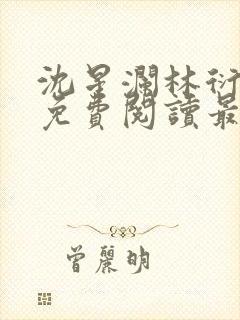 沈星瀾林衍
免費閱讀最
曾麗明